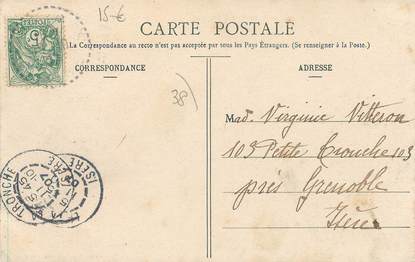 15-€
CARTE POSTALE
La Correspondance au recto n'est pas acceptée par tous les Pays Étrangers. (Se renseigner à la Poste.)
CORRESPONDANCE
ADRESSE
5
38
Mad. Virginie Vitteron
103 Petite Tronche 103
près Grenoble
Isère
LA TRONCHE
ISÈRE